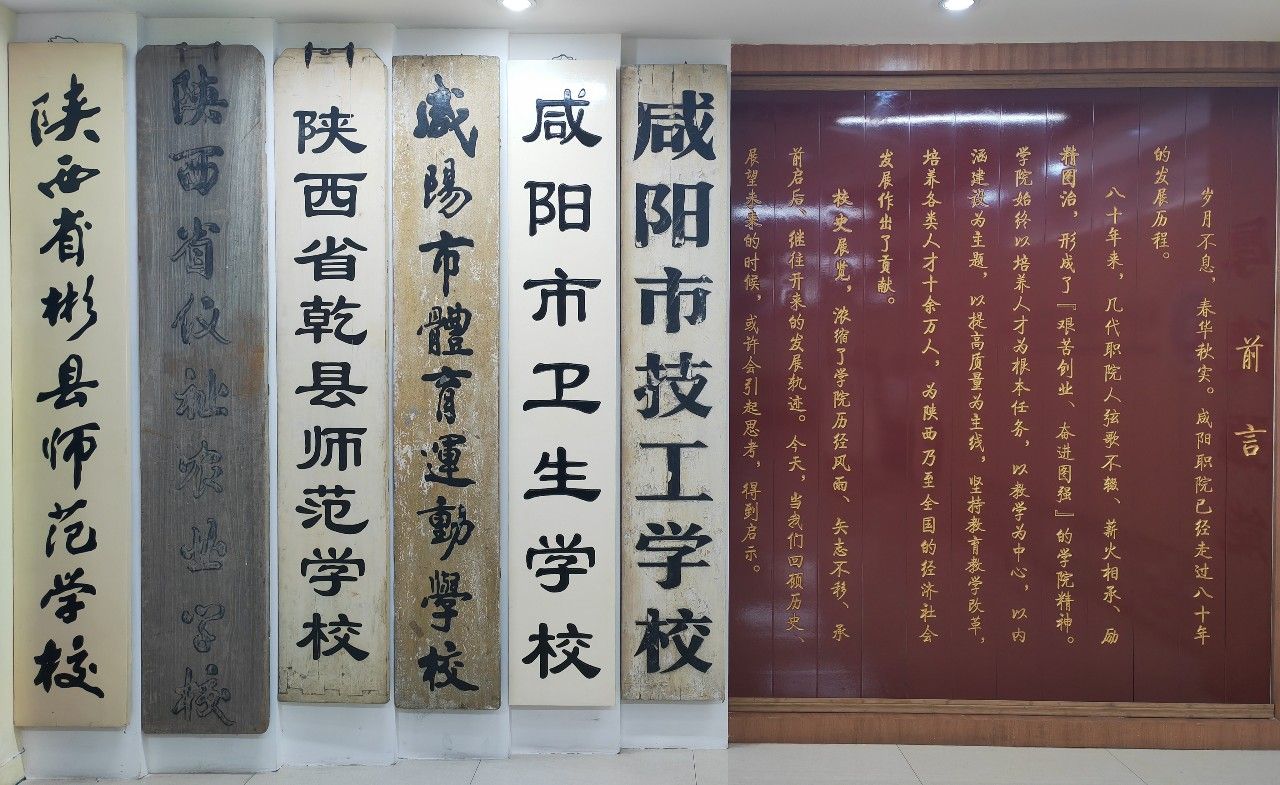 前言
岁月不息，春华秋实。咸阳职院已经走过八十年
的发展历程。
八十年来，几代职院人弦歌不辍、薪火相承、励
精图治，形成了『艰苦创业、奋进图强』的学院精神。
学院始终以培养人才为根本任务，以教学为中心，以内
涵建设为主题，以提高质量为主线，坚持教育教学改革，
培养各类人才十余万人，为陕西乃至全国的经济社会
发展作出了贡献。
校史展览，浓缩了学院历经风雨、矢志不移、承
前启后、继往开来的发展轨迹。今天，当我们回顾历史、
展望未来的时候，或许会引起思考，得到启示。
咸阳市技工学校
咸阳市卫生学校
咸陽市體育運動學校
陕西省乾县师范学校
陕西省仪祉农业学校
陕西省彬县师范学校